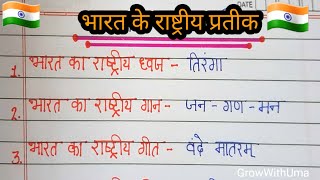 भारत के राष्ट्रीय प्रतीक
DATE
1. भारत का राष्ट्रीय ध्वज - तिरंगा
2. भारत का राष्ट्रीय गान - जन - गण - मन
3. भारत का राष्ट्रीय गीत - वंदे मातरम्
GrowWithUma